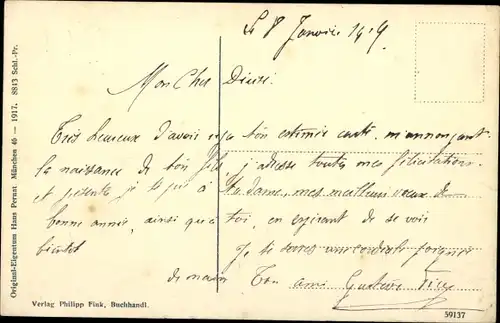 Le 8 Janvier 1919
Mon Cher
Très heureux d'avoir reçu ton estimée carte m'annonçant
la naissance de ton fils j'adresse toutes mes félicitations
et présente je te prie à Madame, mes meilleurs voeux de
bonne année, ainsi qu'à toi, en espérant de se voir
bientôt
Je te serres une cordiale poignée
de main Ton ami Gustave
Original-Eigentum Hans Pernat München 46 — 1917. 8843 Schl.-Pr.
Verlag Philipp Fink, Buchhandl.
59137